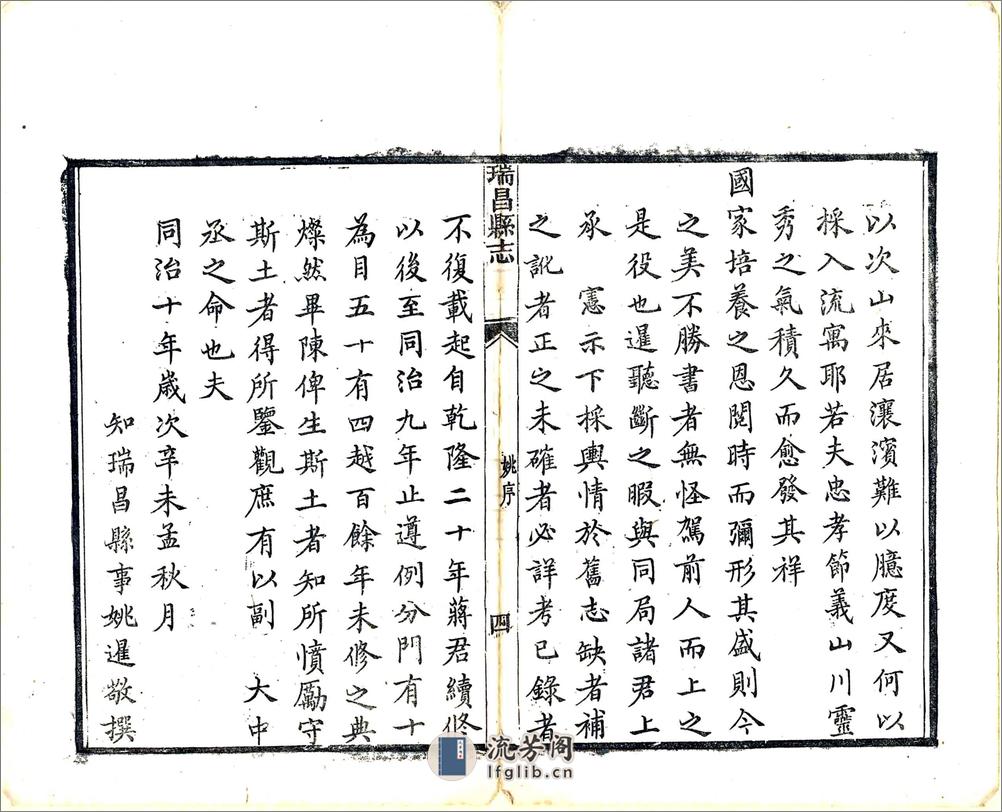 以次山來居瀼濱難以臆度又何以
採入流寓耶若夫忠孝節義山川靈
秀之氣積久而愈發其祥
國家培養之恩閱時而彌形其盛則今
之美不勝書者無怪駕前人而上之
是役也暹聽斷之暇與同局諸君上
承　憲示下採輿情於舊志缺者補
之訛者正之未確者必詳考已錄者
瑞昌縣志
姚序
四
不復載起自乾隆二十年蔣君續修
以後至同治九年止遵例分門有十
為目五十有四越百餘年未修之典
燦然畢陳俾生斯土者知所憤勵守
斯土者得所鑒觀庶有以副　大中
丞之命也夫
同治十年歲次辛未孟秋月
知瑞昌縣事姚暹敬撰
流芳阁
lfglib.cn